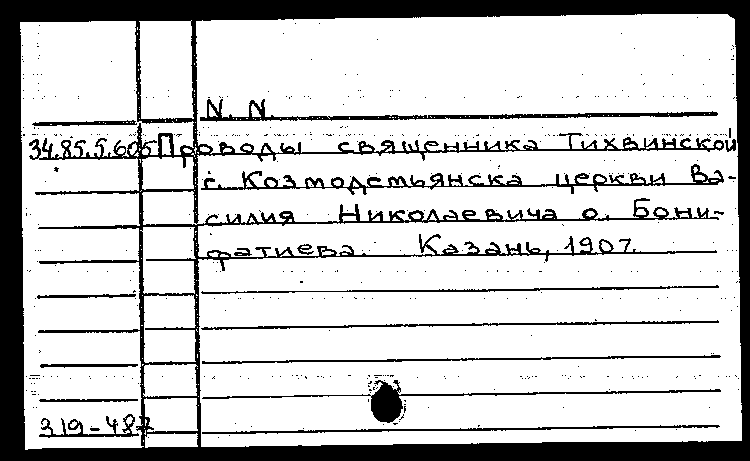 N. N.
34.85.5.605 Проводы священника Тихвинской
г. Козмодемьянска церкви Ва-
силия Николаевича о. Бони-
фатиева. Казань, 1907.
319-487